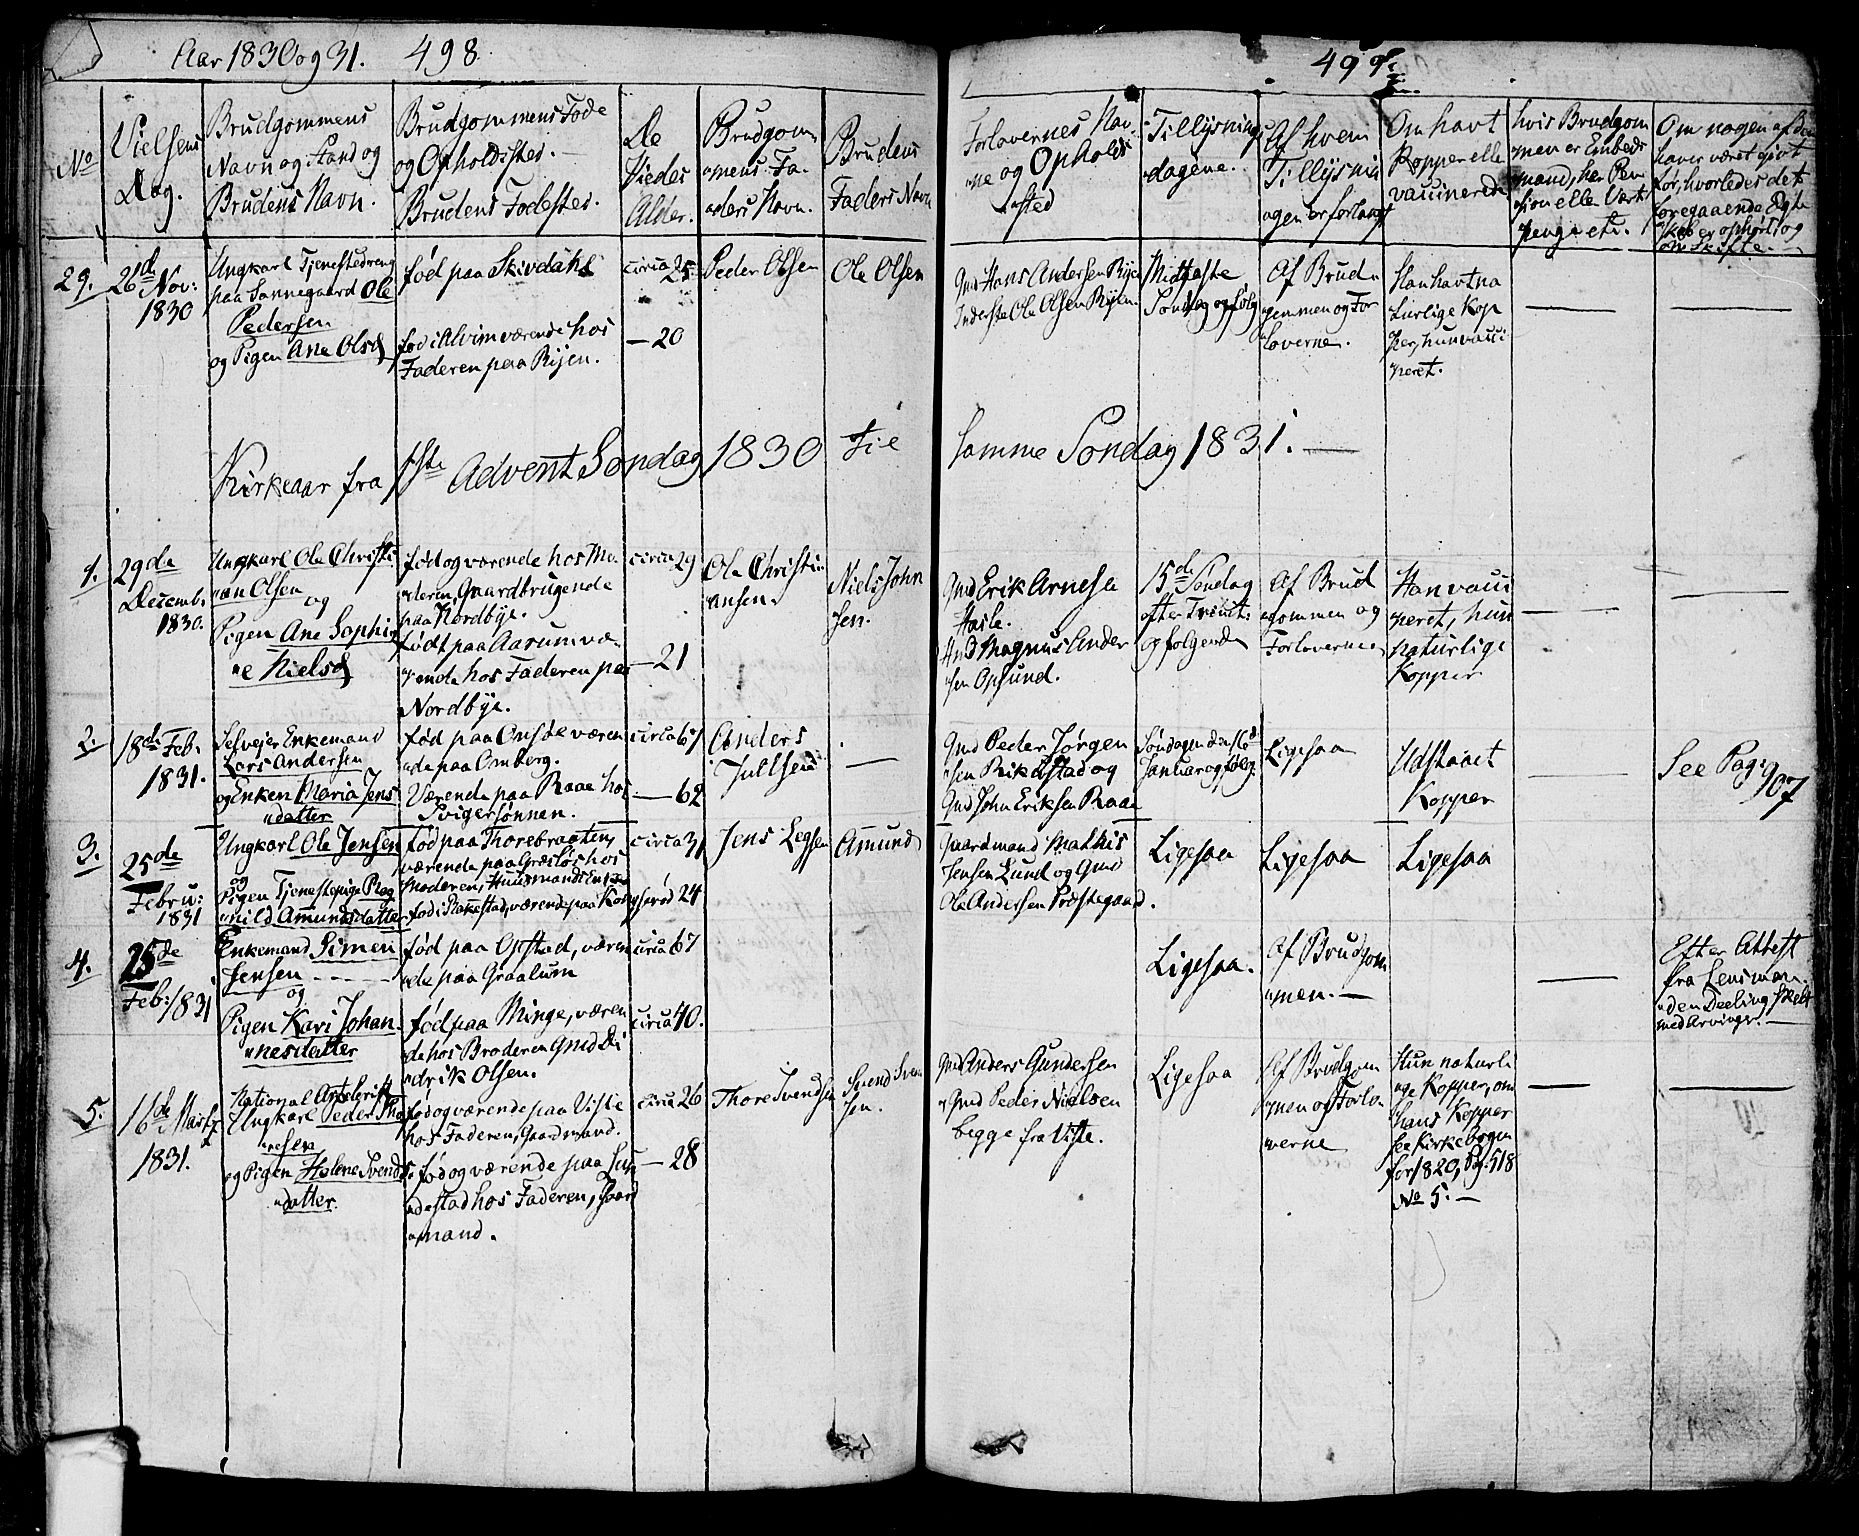 Aar 1830 og 31. 498.
499.
No
Vielsens
Dag.
Brudgommens
Navn og Stand og
Brudens Navn.
Brudgommens Føde
og Opholdsted.
Brudens Fødested.
De
Viedes
Alder.
Brudgom
mens Fa-
ders Navn.
Brudens
Faders Navn
Forlovernes Nav-
ne og Opholds
sted
Tillysnings
dagene.
Af hvem
Tillysnin
gen er forlangt
Om havt
Kopper elle
vaccinerede
hvis Brudgom
men er Embeds
mand, her Pen
sion elle Vært
penge etc.
Om nogen af dem
haver været givt
før, hvorledes det
foregaaende Egte
skab er ophørt og
om Skifte.
29.
26de Nov:
1830
Ungkarl Tjenestedreng
paa Sannegaard Ole
Pedersen
og Pigen Ane Olsd
fød paa Skivdahl
fød i Alvim værende hos
Faderen paa Rijen.
circa 25
— 20
Peder Olsen
Ole Olsen
Gmd Hans Andersen Rijen
Inderste Ole Olsen Rijen
Midfaste
Søndag og følg
Af Brud-
gommen og For
loverne.
Han havt na
turlige Kop
per, hun vacci
neret.
Kirkeaar fra 1ste Advent Søndag 1830 til samme Søndag 1831.
1.
29de
Decemb.
1830.
Ungkarl Ole Christi
an Olsen
og
Pigen Ane Sophi
e Nielsd
fød og værende hos Mo
deren, Gaardbrugende
paa Nordbye.
født paa Aarum væ-
rende hos Faderen paa
Nordbye.
circa 29
— 21
Ole Christi
ansen.
Niels John
sen.
Gmd Erik Arnesen
Hasle.
Gmd Magnus Ander
sen Opsund.
15de Søndag
efter Trinit:
og følgende
Af Brud
gommen og
Forloverne
Han vacci
neret, hun
naturlige
Kopper
2.
18de Feb.
1831.
Selvejer Enkemand
Lars Andersen
og Enken Maria Jens
datter
fød paa Onsøe væren
de paa Omberg.
Værende paa Raae hos
Svigersønnen.
circa 67
— 62
Anders
Julsen
—
Gmd Peder Jørgen
sen Rikdstad og
Gmd John Eriksen Raae
Søndagen den 16de
Januar og følg:
Ligesaa
Udstaaet
Kopper
See Pag: 907
3.
25de
Febru:
1831
Ungkarl Ole Jensen
og
Pigen Tjenestepige Rag
nild Amundsdatter
fød paa Thorebraaten,
værende paa Græsløs hos
Moderen, Huusmands Enke
fød i Rakkestad, værende paa Kongsrød
circa 31
24
Jens Legsen
Amund
Gaardmand Mathis
Jensen Lund og Gmd
Ole Andersen Præstegaard.
Ligesaa
Ligesaa
Ligesaa
4.
25de
Feb: 1831
Enkemand Simen
Jensen
og
Pigen Kari Johan-
nesdatter
fød paa Opstad, væren
de paa Graalum
fød paa Minge, væren
de hos Broderen Gmd Di
drik Olsen.
circa 67
circa 40.
Ligesaa.
Af Brudgom
men.—
Efter Attest
fra Lensman
den Deeling skeet
med Arvinger.—
5.
16de Marts
1831.
National Artelerist
Ungkarl Peder Tho
resen
og Pigen Helene Svends
datter.
fød og værende paa Viste
hos Faderen, Gaardmand.
fød og værende paa Sun
destad hos Faderen, Gaard
mand.
circa 26
— 28
Thore Svendsen
Svend Sven
sen.
Gmd Anders Gundersen
Gmd Peder Nielsen
begge fra Viste.
Ligesaa
Af Brudgom
men og Forlo-
verne
Hun naturli
ge Kopper, om
hans Kopper
see Kirkebogen
for 1820, Pag: 518
No 5.—